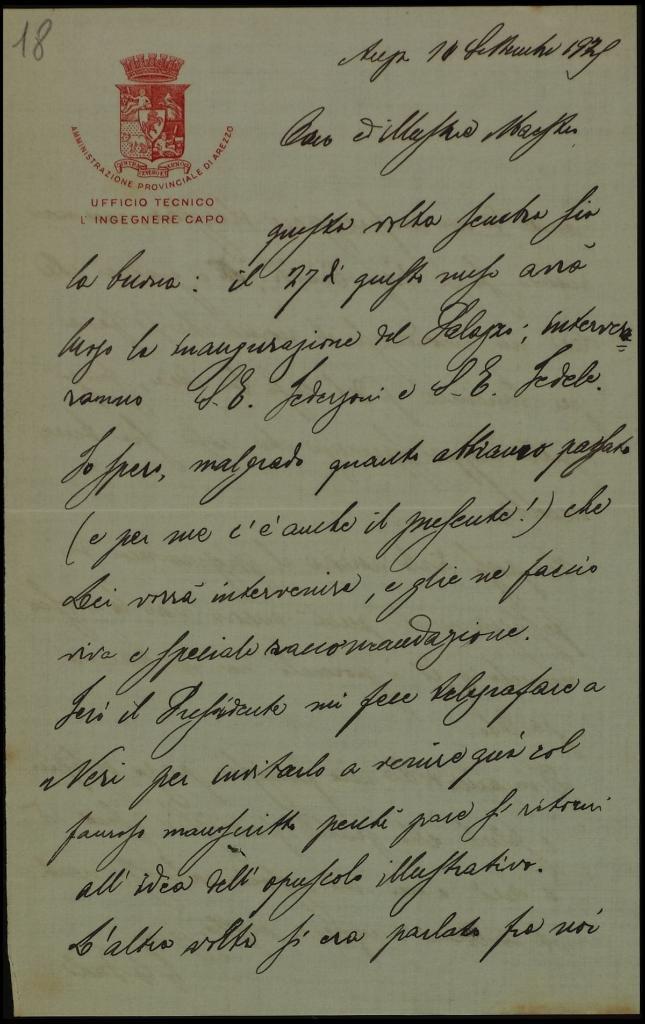 18
Arezzo 10 Settembre 1925
AMMINISTRAZIONE PROVINCIALE DI AREZZO
UFFICIO TECNICO
L'INGEGNERE CAPO
Caro ed Illustre Maestro,
questa volta sembra sia
la buona: il 27 di questo mese avrà
luogo la inaugurazione del Palazzo; interver=
ranno S. E. Federzoni e S. E. Fedele.
Io spero, malgrado quanto abbiamo passato
(e per me c'è anche il presente!) che
Lei vorrà intervenire, e glie ne faccio
viva e speciale raccomandazione.
Ieri il Presidente mi fece telegrafare a
Neri per invitarlo a venire quà col
famoso manoscritto perchè pare si ritorni
all'idea dell'opuscolo illustrativo.
L'altra volta si era parlato fra noi